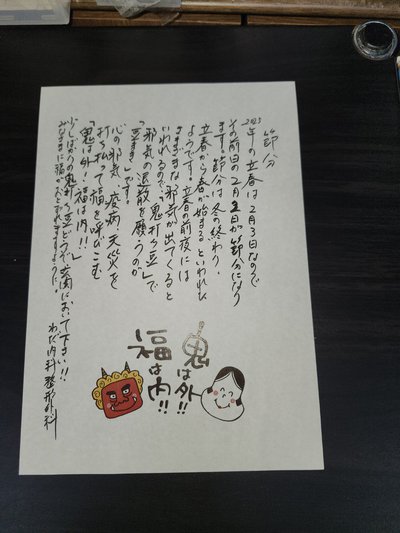 節分
2025年の立春は2月3日なので
その前日の2月2日が節分になり
ます。節分は冬の終わり、
立春から春が始まるといわれた
ようです。立春の前夜には
さまざまな邪気が出てくると
いわれるので、「鬼打ち豆」で
邪気の退散を願うのが
「豆まき」です。
心の邪気、疫病、天災を
打ち払って福を呼びこむ
「鬼は外！福は内！！」
少しばかりの鬼打ち豆どうぞ玄関において下さい！！
みなさまに福がおとずれますように。
わだ内科整形外科
鬼は外!!
福は内!!